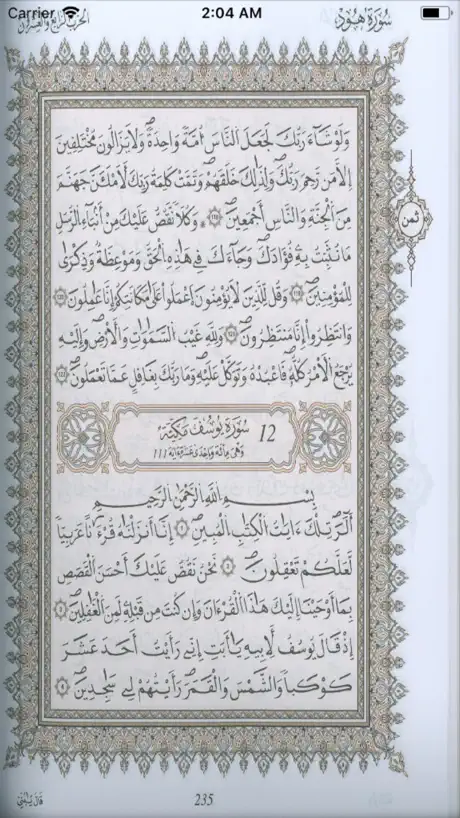 Carrier 2:04 AM
سورة هود
الحزب الرابع والعشرون
وَلَوْ شَآءَ رَبُّكَ لَجَعَلَ اَلنَّاسَ أُمَّةً وَٰحِدَةً وَلَا يَزَالُونَ مُخْتَلِفِينَ
إِلَّا مَن رَّحِمَ رَبُّكَ وَلِذَٰلِكَ خَلَقَهُمْ وَتَمَّتْ كَلِمَةُ رَبِّكَ لَأَمْلَأَنَّ جَهَنَّمَ
مِنَ اَلْجِنَّةِ وَالنَّاسِ أَجْمَعِينَ وَكُلًّا نَّقُصُّ عَلَيْكَ مِنْ أَنۢبَآءِ اِلرُّسُلِ
ثمن
مَا نُثَبِّتُ بِهِۦ فُؤَادَكَ وَجَآءَكَ فِے هَٰذِهِ اِلْحَقُّ وَمَوْعِظَةٌ وَذِكْرَىٰ
لِلْمُؤْمِنِينَ وَقُل لِّلذِينَ لَا يُؤْمِنُونَ اَعْمَلُوا عَلَىٰ مَكَانَتِكُمُۥ إِنَّا عَٰمِلُونَ
وَانتَظِرُوا إِنَّا مُنتَظِرُونَ وَلِلهِ غَيْبُ اُلسَّمَٰوَٰتِ وَالْأَرْضِ وَإِلَيْهِ
يَرْجِعُ اُلْأَمْرُ كُلُّهُۥ فَاعْبُدْهُ وَتَوَكَّلْ عَلَيْهِ وَمَا رَبُّكَ بِغَٰفِلٍ عَمَّا تَعْمَلُونَ
12 سورة يوسف مكية
وهى مائة وإحدى عشرة آية 111
بِسْمِ اِللهِ اِلرَّحْمَٰنِ اِلرَّحِيمِ
أَلَٓر تِلْكَ ءَايَٰتُ اُلْكِتَٰبِ اِلْمُبِينِ إِنَّا أَنزَلْنَٰهُ قُرْءَٰناً عَرَبِيّاً
لَّعَلَّكُمْ تَعْقِلُونَ نَحْنُ نَقُصُّ عَلَيْكَ أَحْسَنَ اَلْقَصَصِ
بِمَا أَوْحَيْنَا إِلَيْكَ هَٰذَا اَلْقُرْءَانَ وَإِن كُنتَ مِن قَبْلِهِۦ لَمِنَ اَلْغَٰفِلِينَ
إِذْ قَالَ يُوسُفُ لِأَبِيهِ يَٰأَبَتِ إِنِّے رَأَيْتُ أَحَدَ عَشَرَ
كَوْكَباً وَالشَّمْسَ وَالْقَمَرَ رَأَيْتُهُمْ لِے سَٰجِدِينَ
قَالَ يَٰبُنَيِّ
235